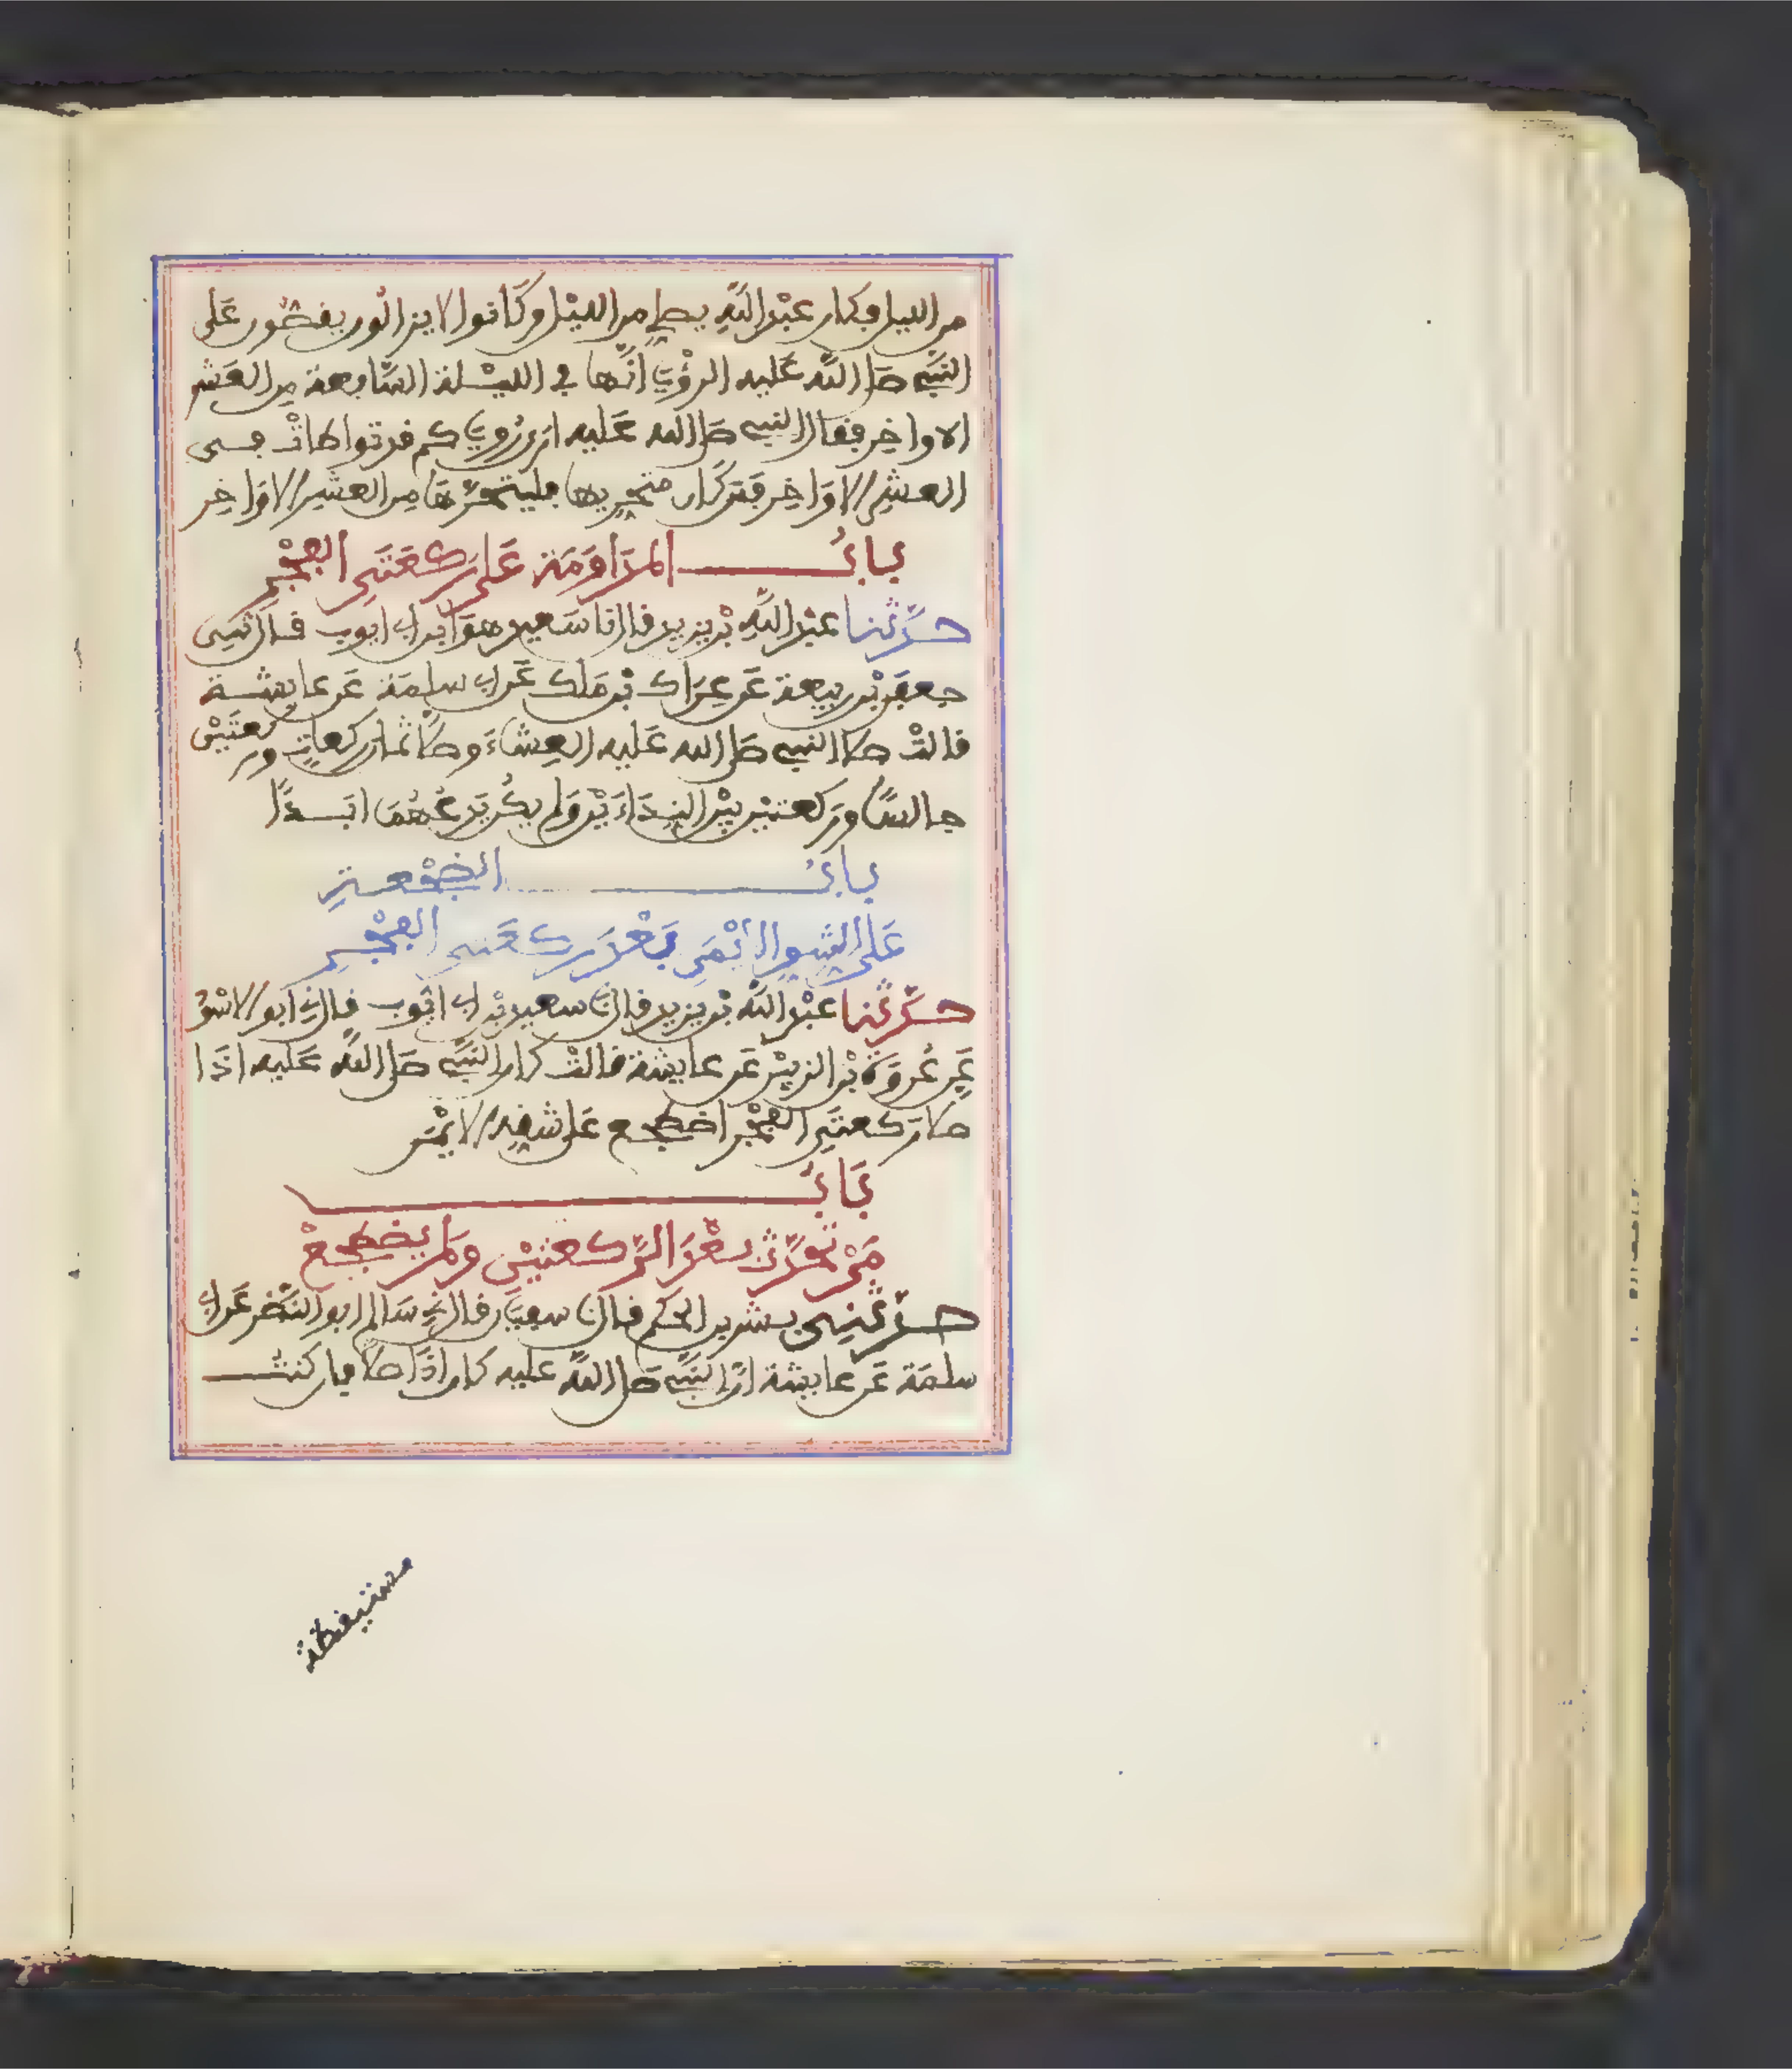 من الليل فكان عبد الله يصلي من الليل وكانوا لا يزالون يقصون على
النبي صلى الله عليه الرؤيا أنها في الليلة السابعة من العشر
الاواخر فقال النبي صلى الله عليه ارى رؤياكم قد تواطات في
العشر الاواخر فمن كان متحريها فليتحرها من العشر الاواخر
باب المداومة على ركعتي الفجر
حدثنا عبد الله بن يزيد قال نا سعيد هو ابن ابي ايوب قال ثني
جعفر بن ربيعة عن عراك بن ملك عن ابي سلمة عن عايشة
قالت صلى النبي صلى الله عليه العشاء وصلى ثمان ركعات وركعتين
جالسا وركعتين بين النداءين ولم يكن يدعهما ابدا
باب الضجعة
على الشق الأيمن بعد ركعتي الفجر
حدثنا عبد الله بن يزيد قال نا سعيد بن ابي ايوب قال ني ابو الاسود
عن عروة بن الزبير عن عايشة قالت كان النبي صلى الله عليه اذا
صلى ركعتي الفجر اضطجع على شقه الايمن
باب
من تحدث بعد الركعتين ولم يضطجع
حدثني بشر بن الحكم قال نا سفيان قال ني سالم ابو النضر عن ابي
سلمة عن عايشة ان النبي صلى الله عليه كان اذا صلى فان كنت
مستيقظة